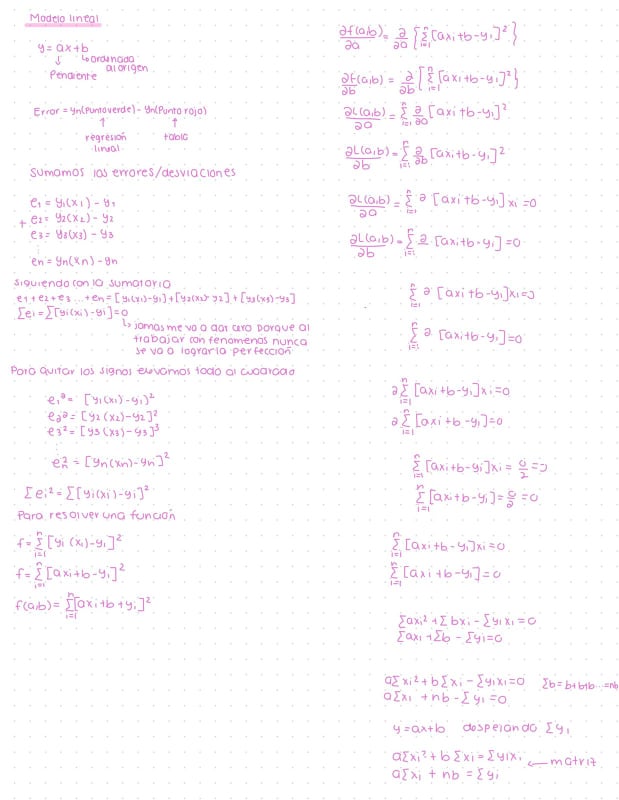 Modelo lineal
y = ax+b
↓ ↳ ordenada al origen
Pendiente
Error = yn(Punto verde) - yn(Punto rojo)
↑ ↑
regresión lineal tabla
Sumamos los errores/desviaciones
e₁ = y₁(x₁) - y₁
+ e₂ = y₂(x₂) - y₂
e₃ = y₃(x₃) - y₃
⋮
en = yn(xn) - yn
siguiendo con la sumatoria
e₁ + e₂ + e₃ ... + en = [y₁(x₁)-y₁]+[y₂(x₂)-y₂]+[y₃(x₃)-y₃]
Σei = Σ[yi(xi)-yi]=0
↳ jamas me va a dar cero porque al
trabajar con fenomenos nunca
se va a lograr la perfección
Para quitar los signos elevamos todo al cuadrado
e₁² = [y₁(x₁)-y₁)²
e₂² = [y₂(x₂)-y₂]²
e₃² = [y₃(x₃)-y₃]³
⋮
en² = [yn(xn)-yn]²
Σei² = Σ[yi(xi)-yi]²
Para resolver una función
f = Σⁿᵢ₌₁ [yi(xi)-yi]²
f = Σⁿᵢ₌₁ [axi+b-yi]²
f(a,b) = Σⁿᵢ₌₁ [axi+b+yi]²
∂f(a,b)/∂a = ∂/∂a {Σⁿᵢ₌₁ [axi+b-yi]²}
∂f(a,b)/∂b = ∂/∂b {Σⁿᵢ₌₁ [axi+b-yi]²}
∂L(a,b)/∂a = Σⁿᵢ₌₁ ∂/∂a [axi+b-yi]²
∂L(a,b)/∂b = Σⁿᵢ₌₁ ∂/∂b [axi+b-yi]²
∂L(a,b)/∂a = Σⁿᵢ₌₁ 2 [axi+b-yi] xi = 0
∂L(a,b)/∂b = Σⁿᵢ₌₁ 2 [axi+b-yi] = 0
Σⁿᵢ₌₁ 2 [axi+b-yi]xi = 0
Σⁿᵢ₌₁ 2 [axi+b-yi] = 0
2 Σⁿᵢ₌₁ [axi+b-yi]xi = 0
2 Σⁿᵢ₌₁ [axi+b-yi] = 0
Σⁿᵢ₌₁ [axi+b-yi]xi = 0/2 = 0
Σⁿᵢ₌₁ [axi+b-yi] = 0/2 = 0
Σⁿᵢ₌₁ [axi+b-yi]xi = 0
Σⁿᵢ₌₁ [axi+b-yi] = 0
Σaxi² + Σbxi - Σyixi = 0
Σaxi + Σb - Σyi = 0
aΣxi² + bΣxi - Σyixi = 0 Σb = b+b+b...=nb
aΣxi + nb - Σyi = 0
y = ax+b despejando Σyi
aΣxi² + bΣxi = Σyixi ← matriz
aΣxi + nb = Σyi